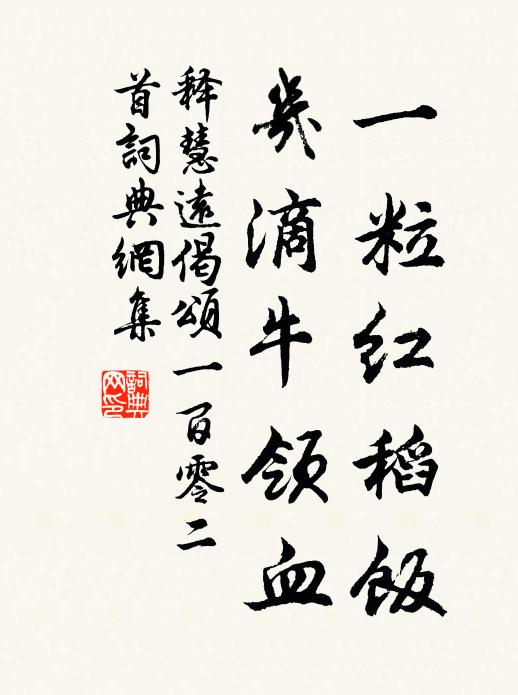 一粒红稻飯
几滴牛领血
释慧遠偈頌一百零二
首詞典網集
詞典
网印